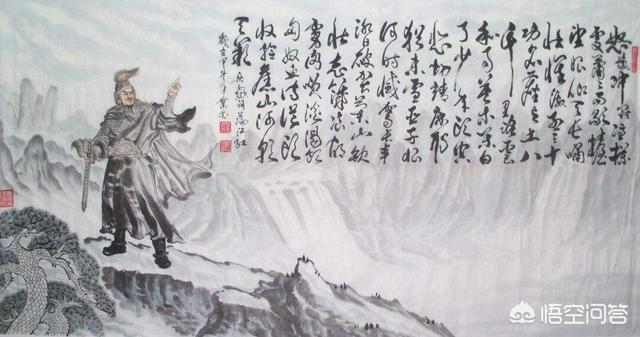 怒发冲冠凭栏
处潇潇雨歇抬
望眼仰天长啸
壮怀激烈三十
功名尘与土八
千里路云
和月莫等闲白
了少年头空
悲切靖康耻
犹未雪臣子恨
何时灭驾长车
踏破贺兰山缺
壮志饥餐胡
虏肉笑谈渴饮
匈奴血待从头
收拾旧山河朝
天阙 岳飞词满江红
悟空问答